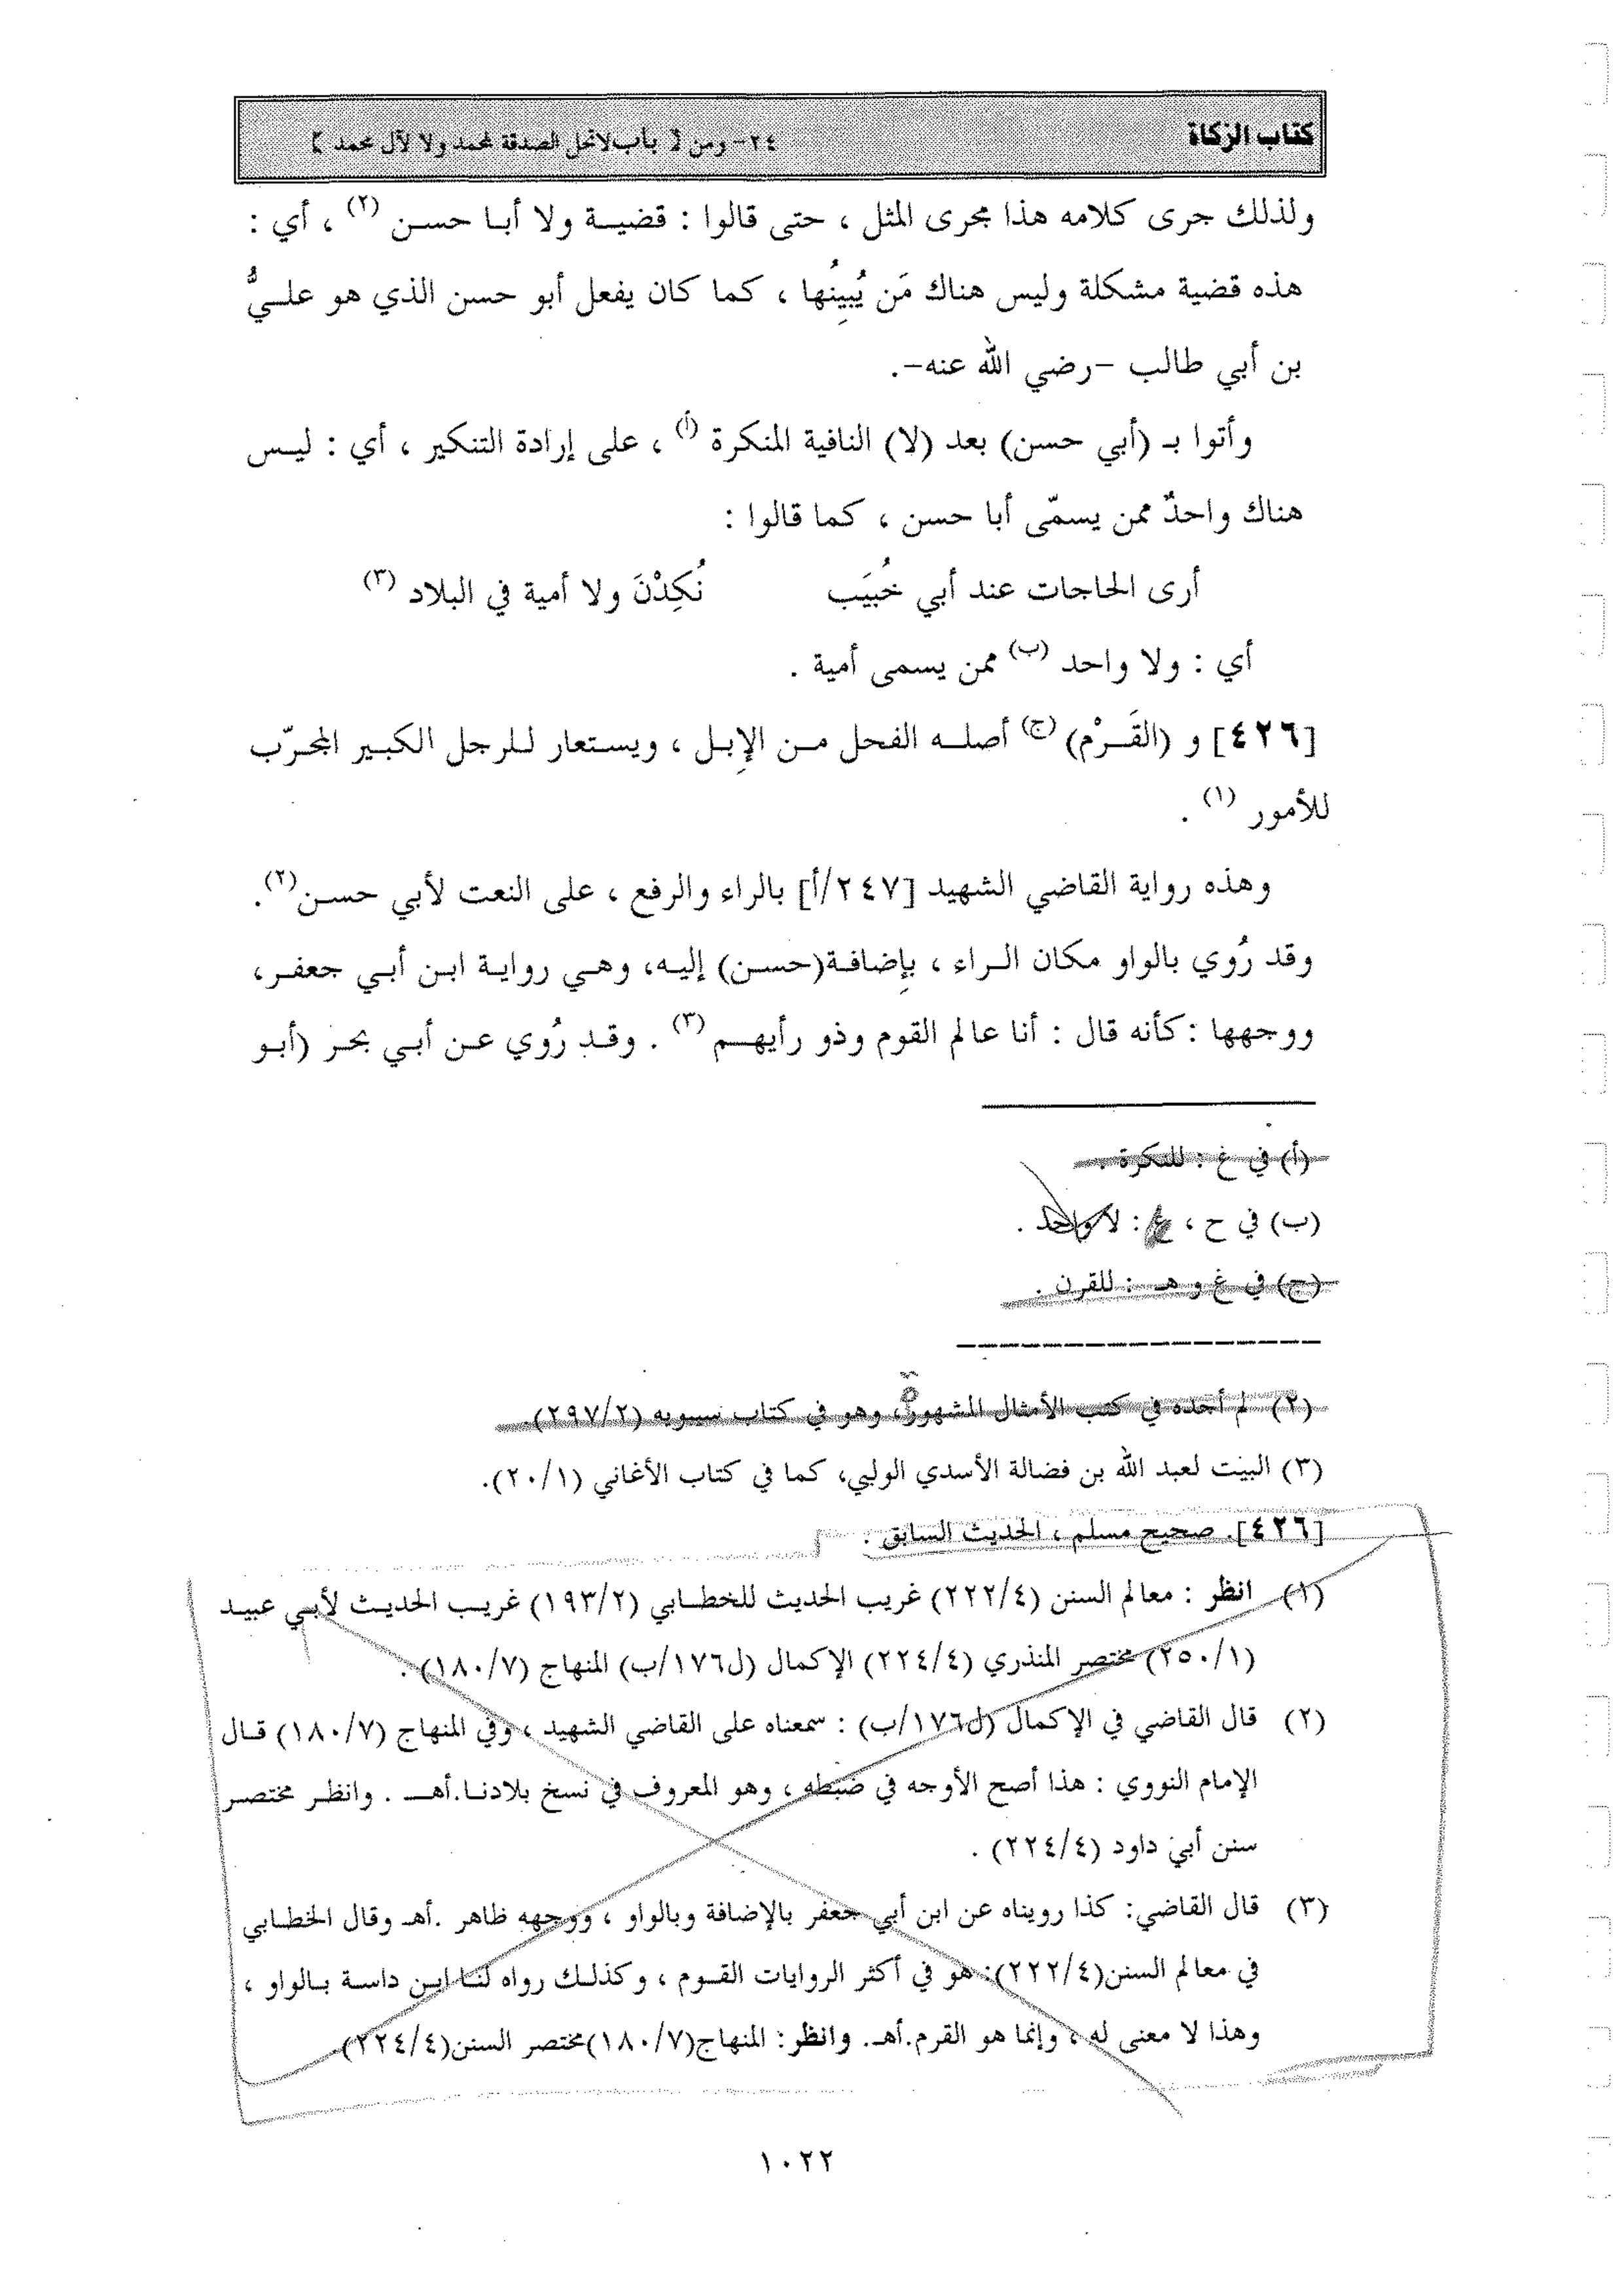 كتاب الزكاة
٢٤- ومن [ باب لا تحل الصدقة لمحمد ولا لآل محمد ]
ولذلك جرى كلامه هذا مجرى المثل ، حتى قالوا : قضية ولا أبا حسن (٢) ، أي :
هذه قضية مشكلة وليس هناك مَن يُبيِنُها ، كما كان يفعل أبو حسن الذي هو عليُّ
بن أبي طالب –رضي الله عنه–.
وأتوا بـ (أبي حسن) بعد (لا) النافية المنكرة (أ) ، على إرادة التنكير ، أي : ليس
هناك واحدٌ ممن يسمّى أبا حسن ، كما قالوا :
أرى الحاجات عند أبي خُبيَب نُكِدْنَ ولا أمية في البلاد (٣)
أي : ولا واحد (ب) ممن يسمى أمية .
[٤٢٦] و (القَرْم) (ج) أصله الفحل من الإبل ، ويستعار للرجل الكبير المجرّب
للأمور (١) .
وهذه رواية القاضي الشهيد [٢٤٧/أ] بالراء والرفع ، على النعت لأبي حسن(٢).
وقد رُوي بالواو مكان الراء ، بإضافة(حسن) إليه، وهي رواية ابن أبي جعفر،
ووجهها : كأنه قال : أنا عالم القوم وذو رأيهم (٣) . وقد رُوي عن أبي بحر (أبو
(أ) في غ : للنكرة .
(ب) في ح ، غ : لا واحد .
(ج) في غ و هـ : للقرن .
(٢) لم أجده في كتب الأمثال المشهورة، وهو في كتاب سيبويه (٢٩٧/٢).
(٣) البيت لعبد الله بن فضالة الأسدي الولبي، كما في كتاب الأغاني (٢٠/١).
[٤٢٦]. صحيح مسلم ، الحديث السابق .
(١) انظر : معالم السنن (٢٢٢/٤) غريب الحديث للخطابي (١٩٣/٢) غريب الحديث لأبي عبيد
(٢٥٠/١) مختصر المنذري (٢٢٤/٤) الإكمال (ل١٧٦/ب) المنهاج (١٨٠/٧) .
(٢) قال القاضي في الإكمال (ل١٧٦/ب) : سمعناه على القاضي الشهيد ، وفي المنهاج (١٨٠/٧) قال
الإمام النووي : هذا أصح الأوجه في ضبطه ، وهو المعروف في نسخ بلادنا.أهـ . وانظر مختصر
سنن أبي داود (٢٢٤/٤) .
(٣) قال القاضي: كذا رويناه عن ابن أبي جعفر بالإضافة وبالواو ، ووجهه ظاهر .أهـ وقال الخطابي
في معالم السنن(٢٢٢/٤): هو في أكثر الروايات القوم ، وكذلك رواه لنا ابن داسة بالواو ،
وهذا لا معنى له ، وإنما هو القرم.أهـ. وانظر: المنهاج(١٨٠/٧)مختصر السنن(٢٢٤/٤).
١٠٢٢